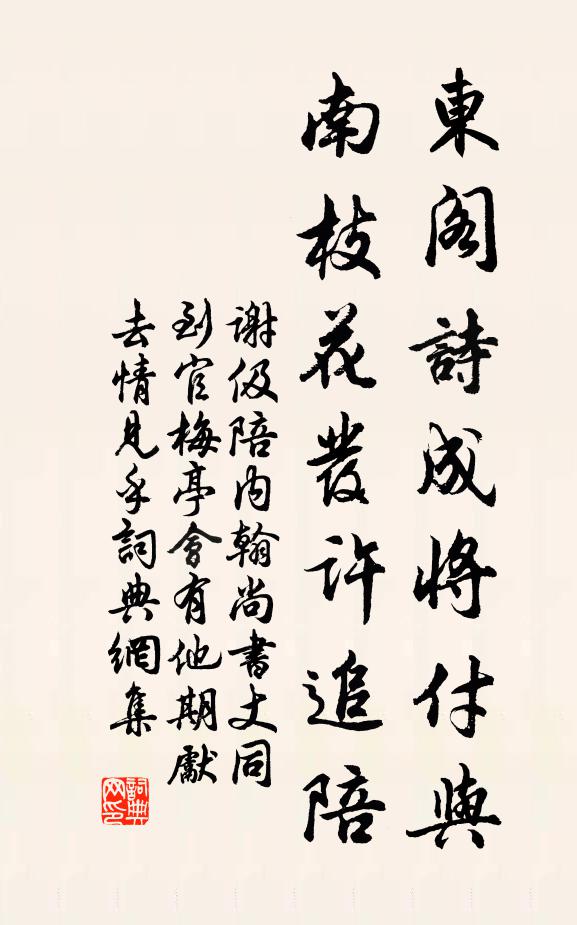 東閣詩成將付與
南枝花發許追陪
謝伋陪內翰尚書丈同
到官梅亭會有他期獻
去情見乎詞典網集
詞典网印